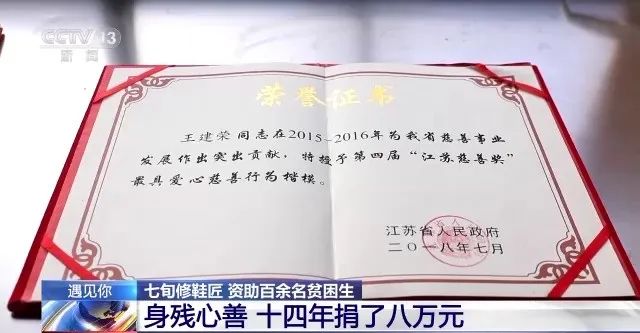 CCTV 13
新闻
荣誉证书
王建荣同志在2015-2016年为我省慈善事业
发展作出突出贡献，特授予第四届“江苏慈善奖”
最具爱心慈善行为楷模。
江苏省人民政府
二〇一八年七月
遇见你
七旬修鞋匠 资助百余名贫困生
身残心善 十四年捐了八万元